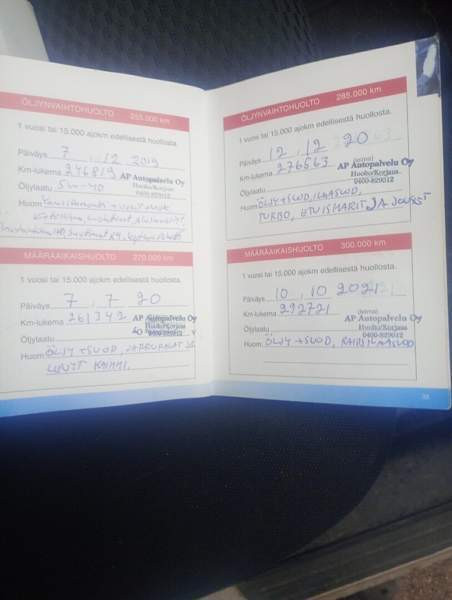 ÖLJYNVAIHTOHUOLTO 255.000 km
1 vuosi tai 15.000 ajokm edellisestä huollosta.
Päiväys 7 . 12 2019
Km-lukema 246819 AP Autopalvelu Oy
Huolto/Korjaus
Öljylaatu 5W-40 0400-829012
Huom.
MÄÄRÄAIKAISHUOLTO 270.000 km
1 vuosi tai 15.000 ajokm edellisestä huollosta.
Päiväys 7 . 7 20
Km-lukema 261342 AP Autopalvelu Oy
Huolto/Korjaus
Öljylaatu 0400-829012
Huom. ÖLJY +SUOD,
ÖLJYNVAIHTOHUOLTO 285.000 km
1 vuosi tai 15.000 ajokm edellisestä huollosta.
Päiväys 12 . 12 20
(leima)
Km-lukema 276563 AP Autopalvelu Oy
Huolto/Korjaus
Öljylaatu 0400-829012
Huom. ÖLJY+SUOD, ILMASUOD,
TURBO, ETUISKARIT JA JOUSET
MÄÄRÄAIKAISHUOLTO 300.000 km
1 vuosi tai 15.000 ajokm edellisestä huollosta.
Päiväys 10 . 10 2021
(leima)
Km-lukema 292721 AP Autopalvelu Oy
Huolto/Korjaus
Öljylaatu 0400-829012
Huom. ÖLJY +SUOD, RAITISILMASUOD